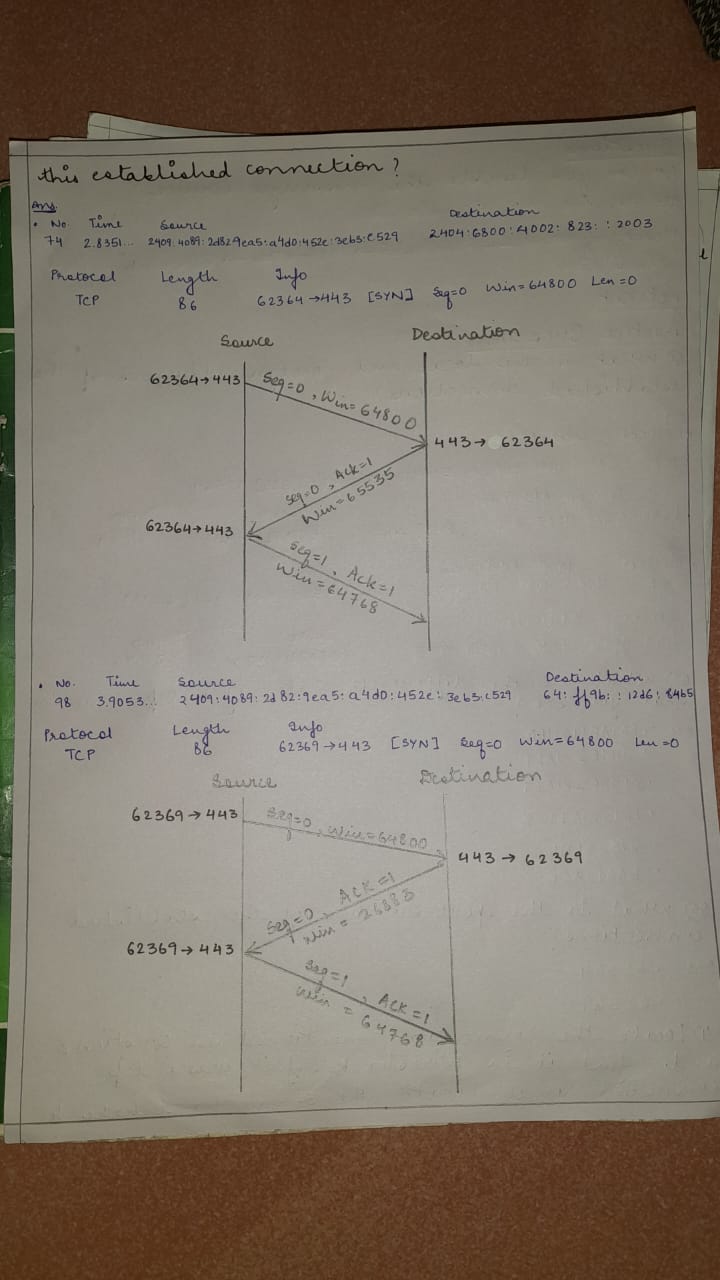 this established connection?
Ans.
• No. Time Source Destination
74 2.8351... 2409:4089:2d82:9ea5:a4d0:452e:3eb3:c529 2404:6800:4002:823::2003
Protocol Length Info
TCP 86 62364→443 [SYN] Seq=0 Win=64800 Len=0
Source Destination
62364→443 Seq=0, Win=64800
443→ 62364
Seq=0, Ack=1
Win=65535
62364→443
Seq=1, Ack=1
Win=64768
• No. Time Source Destination
98 3.9053... 2409:4089:2d82:9ea5:a4d0:452e:3eb3:c529 64:ff9b::12d6:84b5
Protocol Length Info
TCP 86 62369→443 [SYN] Seq=0 Win=64800 Len=0
Source Destination
62369→443 Seq=0, Win=64800
443→62369
Seq=0, ACK=1
Win = 26883
62369→443
Seq=1, ACK=1
Win = 64768